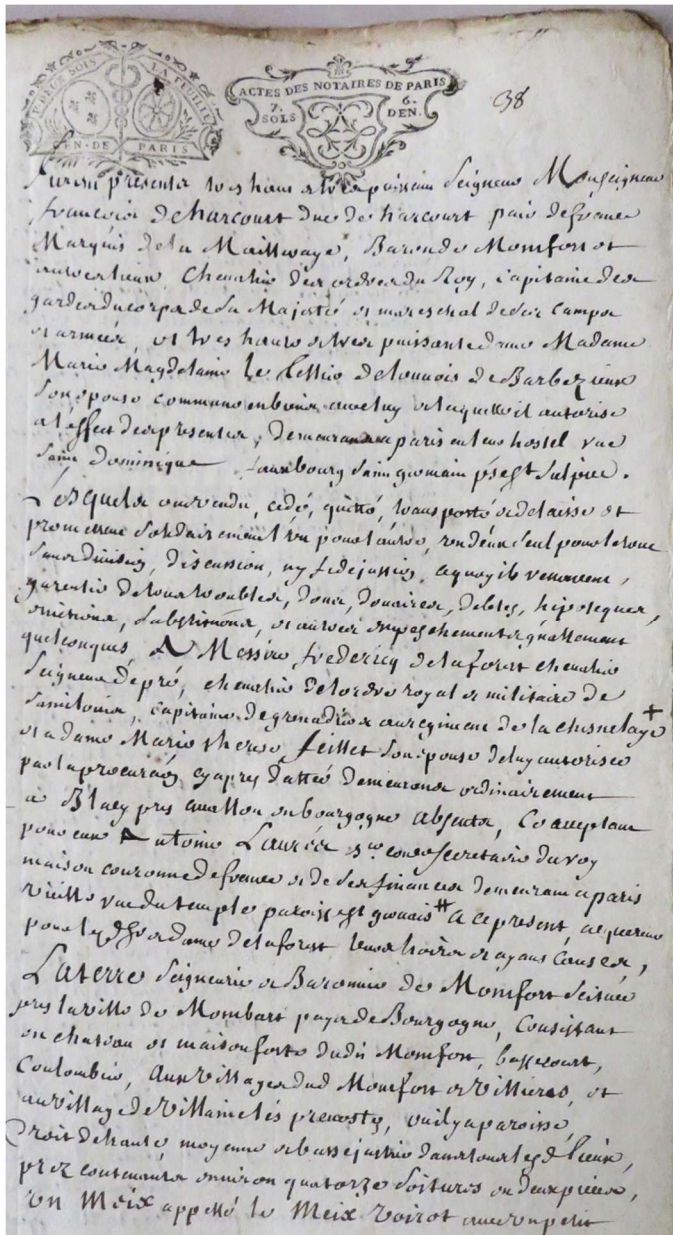 DEUX SOLS LA FEUILLE
GEN. DE PARIS
ACTES DES NOTAIRES DE PARIS
7. SOLS 6. DEN.
38
Furent presents tres haut et tres puissant Seigneur Monseigneur
francois deharcourt duc de harcourt pair defrance
Marquis dela Mailleraye, Baron de Montfort et
Chevalier des ordres du Roy, capitaine des
gardes du corps de Sa Majesté et mareschal de ses camps
et armées, et tres haute et tres puissante dame Madame
Marie Magdelaine le Tellier delouvois de Barbezieux
Son epouse commune en biens avec luy et laquelle il autorise
a l'effect des presentes, demeurans a paris en leur hostel rue
Saint Dominique fauxbourg Saint germain psse St Sulpice.
Lesquels ont vendu, cedé, quitté, transporté et delaissé et
promettent solidairement l'un pour l'autre, un d'eux seul pour le tout
sans division, discussion, ny fidejussion, a quoy ils renoncent,
garentir de tous troubles, dons, douaires, debtes, hipoteques,
evictions, substitutions, et autres empeschements generallement
quelconques, A Messire frederic delaforest chevalier
Seigneur depré, chevalier de l'ordre royal et militaire de
Saint louis, capitaine de grenadiers au regiment de la chesnelaye +
et a dame Marie therese feillet son epouse de luy autorisée
par la procuraon cy apres datée demeurans ordinairement
a Blacy pres avallon en bourgogne absents, Ce acceptant
pour eux Antoine Laurés Secretaire du roy
maison couronne de france et de ses finances demeurant a paris
vieille rue du temple paroisse St gervais # a ce present, acquereur
pour lesd Sr et dame delaforest leurs hoirs et ayans causes,
La terre Seigneurie et Baronnie de Montfort scituée
pres la ville de Mombart pays de Bourgogne, Consistant
en chateau et maison forte dudit Montfort, bassecourt,
Coulombier, aux villages dud Montfort et villiers, et
au village de villaine les prevostes, ou il y a paroisse,
Droit de haute moyenne et basse justice dans tous lesd lieux,
prez contenants environ quatorze soitures en deux pieces,
un Meix appellé le Meix voirot avec un petit